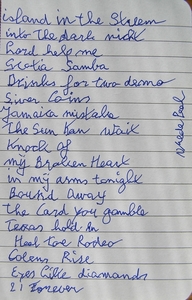 island in the Stream
into the dark nick
Lord help me
Exotia Samba
Drinks for two demo
Siver Coins
Jamaica mistake
The Sun Can wait
Knock of
my Broken Heart
in my arms tonight
Bound Away
the Card you gamble
Texas hold in
Heel toe Rodeo
Colens Rise
Eyes like diamonds
21 Forever